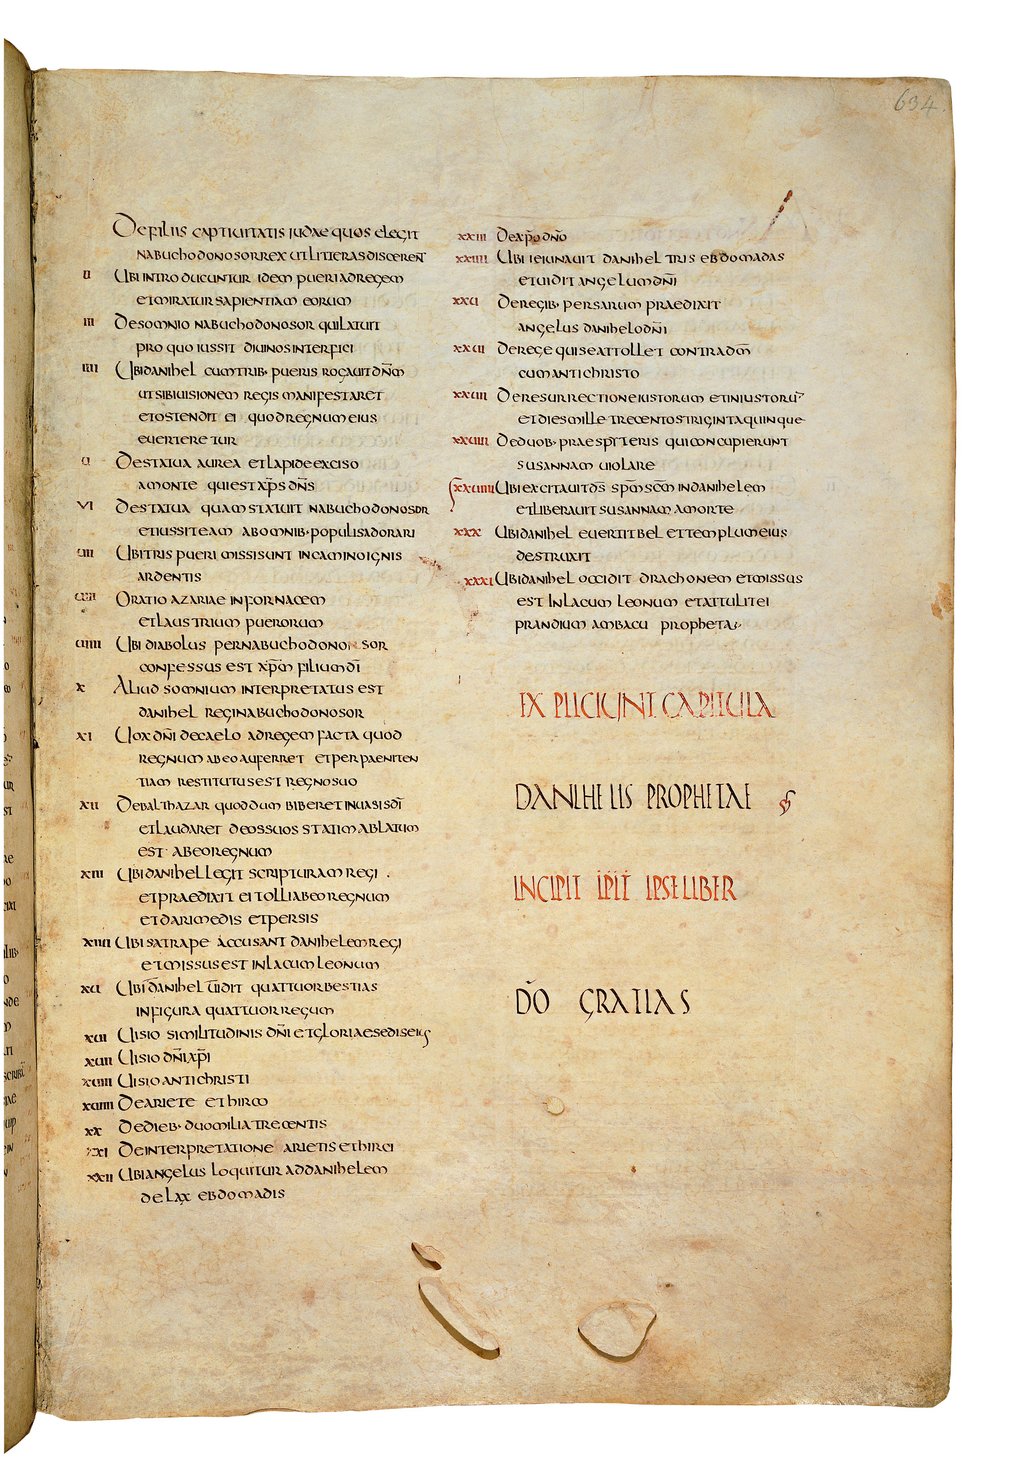 634
De filiis captiuitatis iudae quos elegit
nabuchodonosor rex ut litteras discerent̄
II Ubi introducuntur idem pueri ad regem
et miratur sapientiam eorum
III De somnio nabuchodonosor qui latuit
pro quo iussit diuinos interfici
IIII Ubi danihel cum trib· pueris rogauit dn̄m
ut sibi uisionem regis manifestaret
et ostendit ei quod regnum eius
euerteretur
U De statua aurea et lapide exciso
a monte qui est xp̄s dn̄s
VI De statua quam statuit nabuchodonosor
et iussit eam ab omnib· populis adorari
UII Ubi tris pueri missi sunt in camino ignis
ardentis
UIII Oratio azariae in fornacem
et laus trium puerorum
UIIII Ubi diabolus per nabuchodonosor
confessus est xp̄m filium dī
X Aliud somnium interpretatus est
danihel regi nabuchodonosor
XI Uox dn̄i de caelo ad regem facta quod
regnum ab eo auferret et per paeniten
tiam restitutus est regno suo
XII De balthazar quod dum biberet in uasis dī
et laudaret deos suos statim ablatum
est ab eo regnum
XIII Ubi danihel legit scripturam regi
et praedixit ei tolli ab eo regnum
et dari medis et persis
XIIII Ubi satrape accusant danihelem regi
et missus est in lacum leonum
XU Ubi danihel uidit quattuor bestias
in figura quattuor regum
XUI Uisio similitudinis dn̄i et gloriae sedis eius
XUII Uisio dn̄i xp̄i
XUIII Uisio antichristi
XUIIII De ariete et hirco
XX De dieb· duo milia trecentis
XXI De interpretatione arietis et hirci
XXII Ubi angelus loquitur ad danihelem
de lxx ebdomadis
XXIII De xp̄o dn̄o
XXIIII Ubi ieiunauit danihel tris ebdomadas
et uidit angelum dn̄i
XXU De regib· persarum praedixit
angelus danihelo dn̄i
XXUI De rege qui se attollet contra dm̄
cum antichristo
XXUII De resurrectione iustorum et iniustorū
et dies mille trecentos triginta quinque
XXUIII De duob· praesp̄teris qui concupierunt
susannam uiolare
XXUIIII Ubi excitauit ds̄ sp̄m sc̄m in danihelem
et liberauit susannam a morte
XXX Ubi danihel euertit bel et templum eius
destruxit
XXXI Ubi danihel occidit drachonem et missus
est in lacum leonum et attulit ei
prandium ambacu propheta
EXPLICIUNT CAPITULA
DANIHELIS PROPHETAE
INCIPIT IP̄IT̄ IPSE LIBER
DŌ GRATIAS